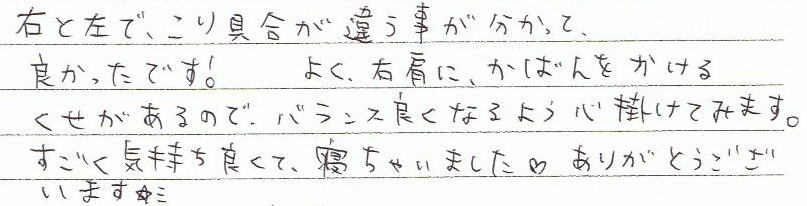 右と左で、こり具合が違う事が分かって、
良かったです! よく、右肩に、かばんをかける
くせがあるので、バランス良くなるよう心掛けてみます。
すごく気持ち良くて、寝ちゃいました♡ ありがとうござ
います☆ミ